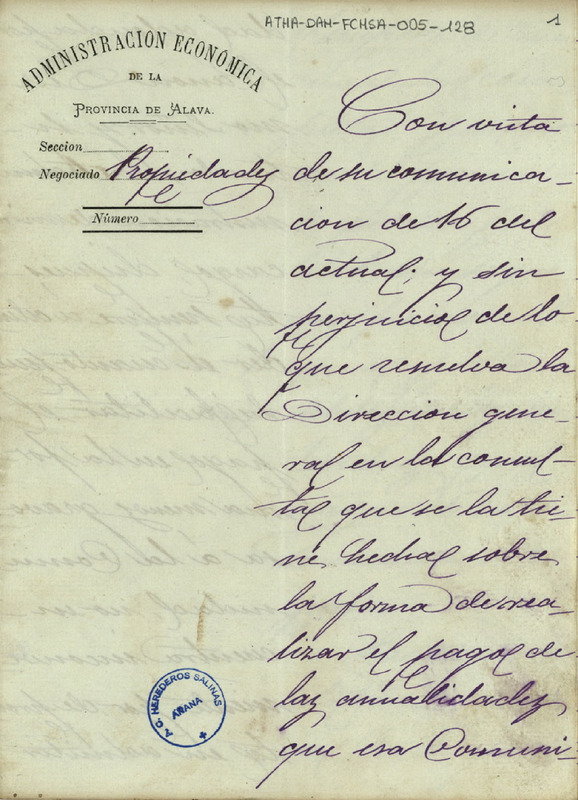 ATHA-DAH-FCHSA-005-128
1
ADMINISTRACION ECONÓMICA
DE LA
PROVINCIA DE ALAVA.
Seccion
Negociado Propiedades
Número
Con vista
de su comunica-
cion de 16 del
actual; y sin
perjuicio de lo
que resuelva la
Direccion gene-
ral en la consul-
ta que se la tie-
ne hecha sobre
la forma de rea-
lizar el pago de
las anualidades
que esa Comuni-
A. C. HEREDEROS SALINAS
ARANA